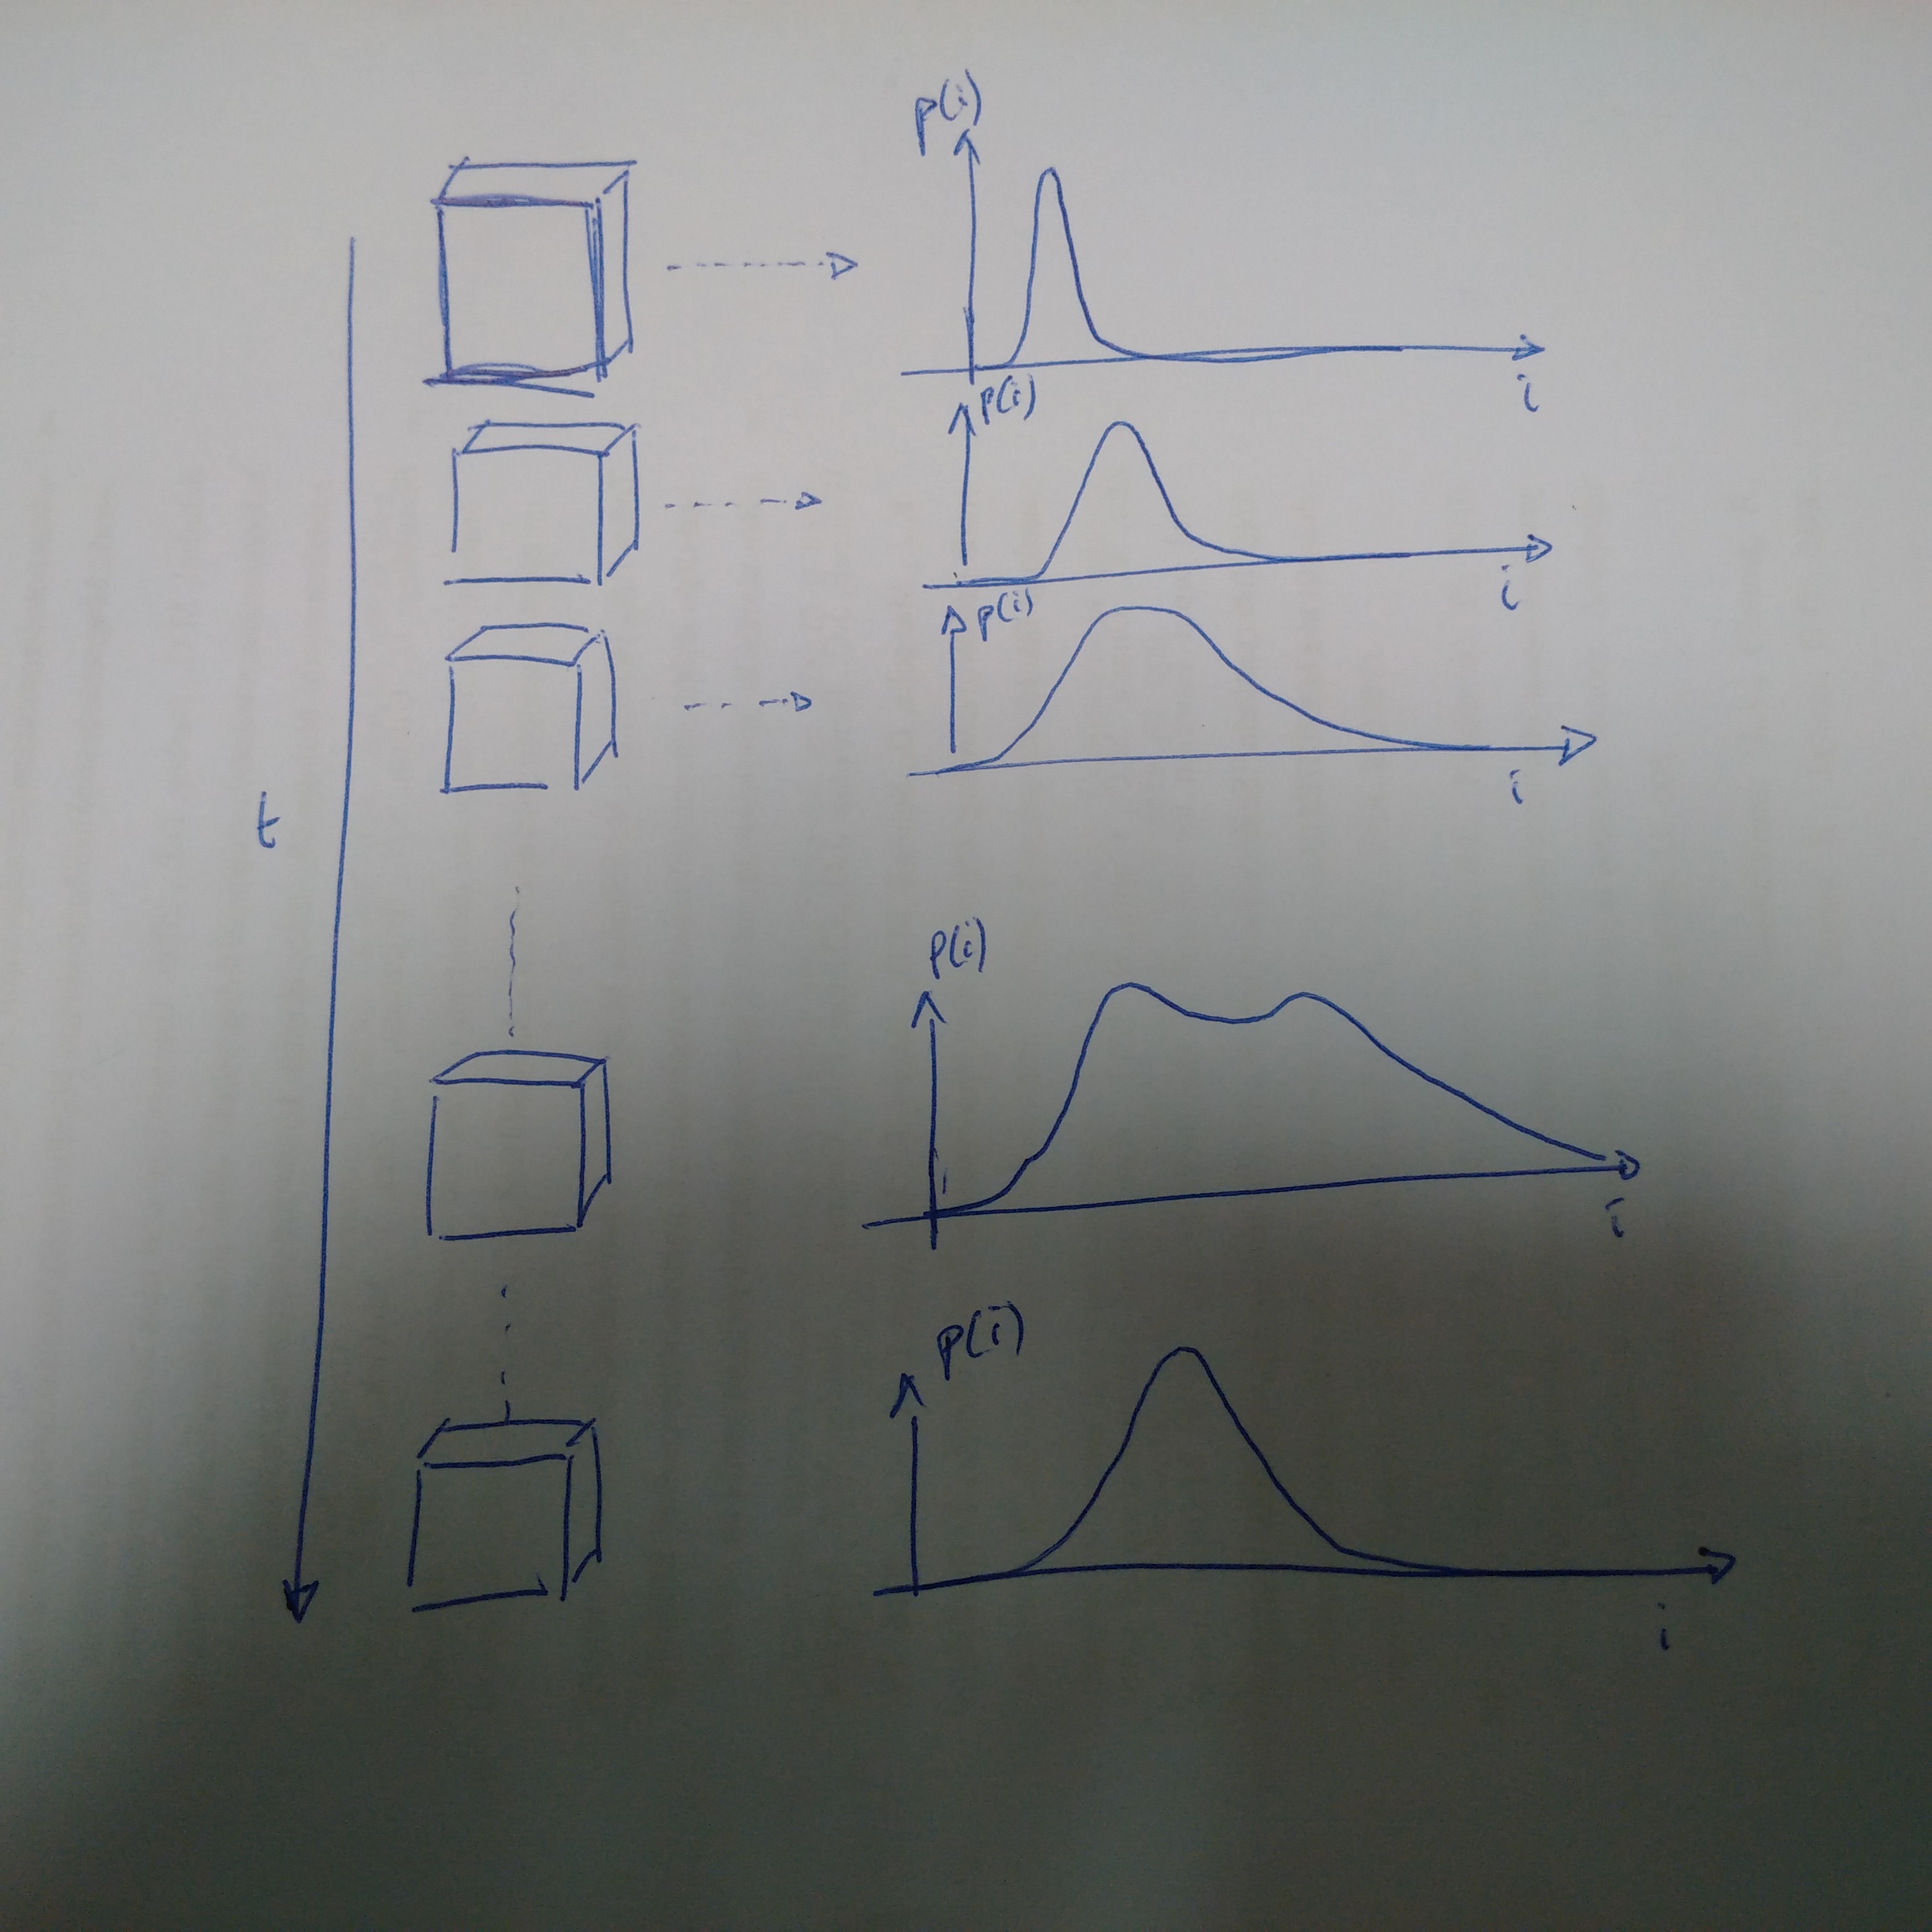 p(i)
i
p(i)
i
p(i)
i
t
p(i)
i
p(i)
i